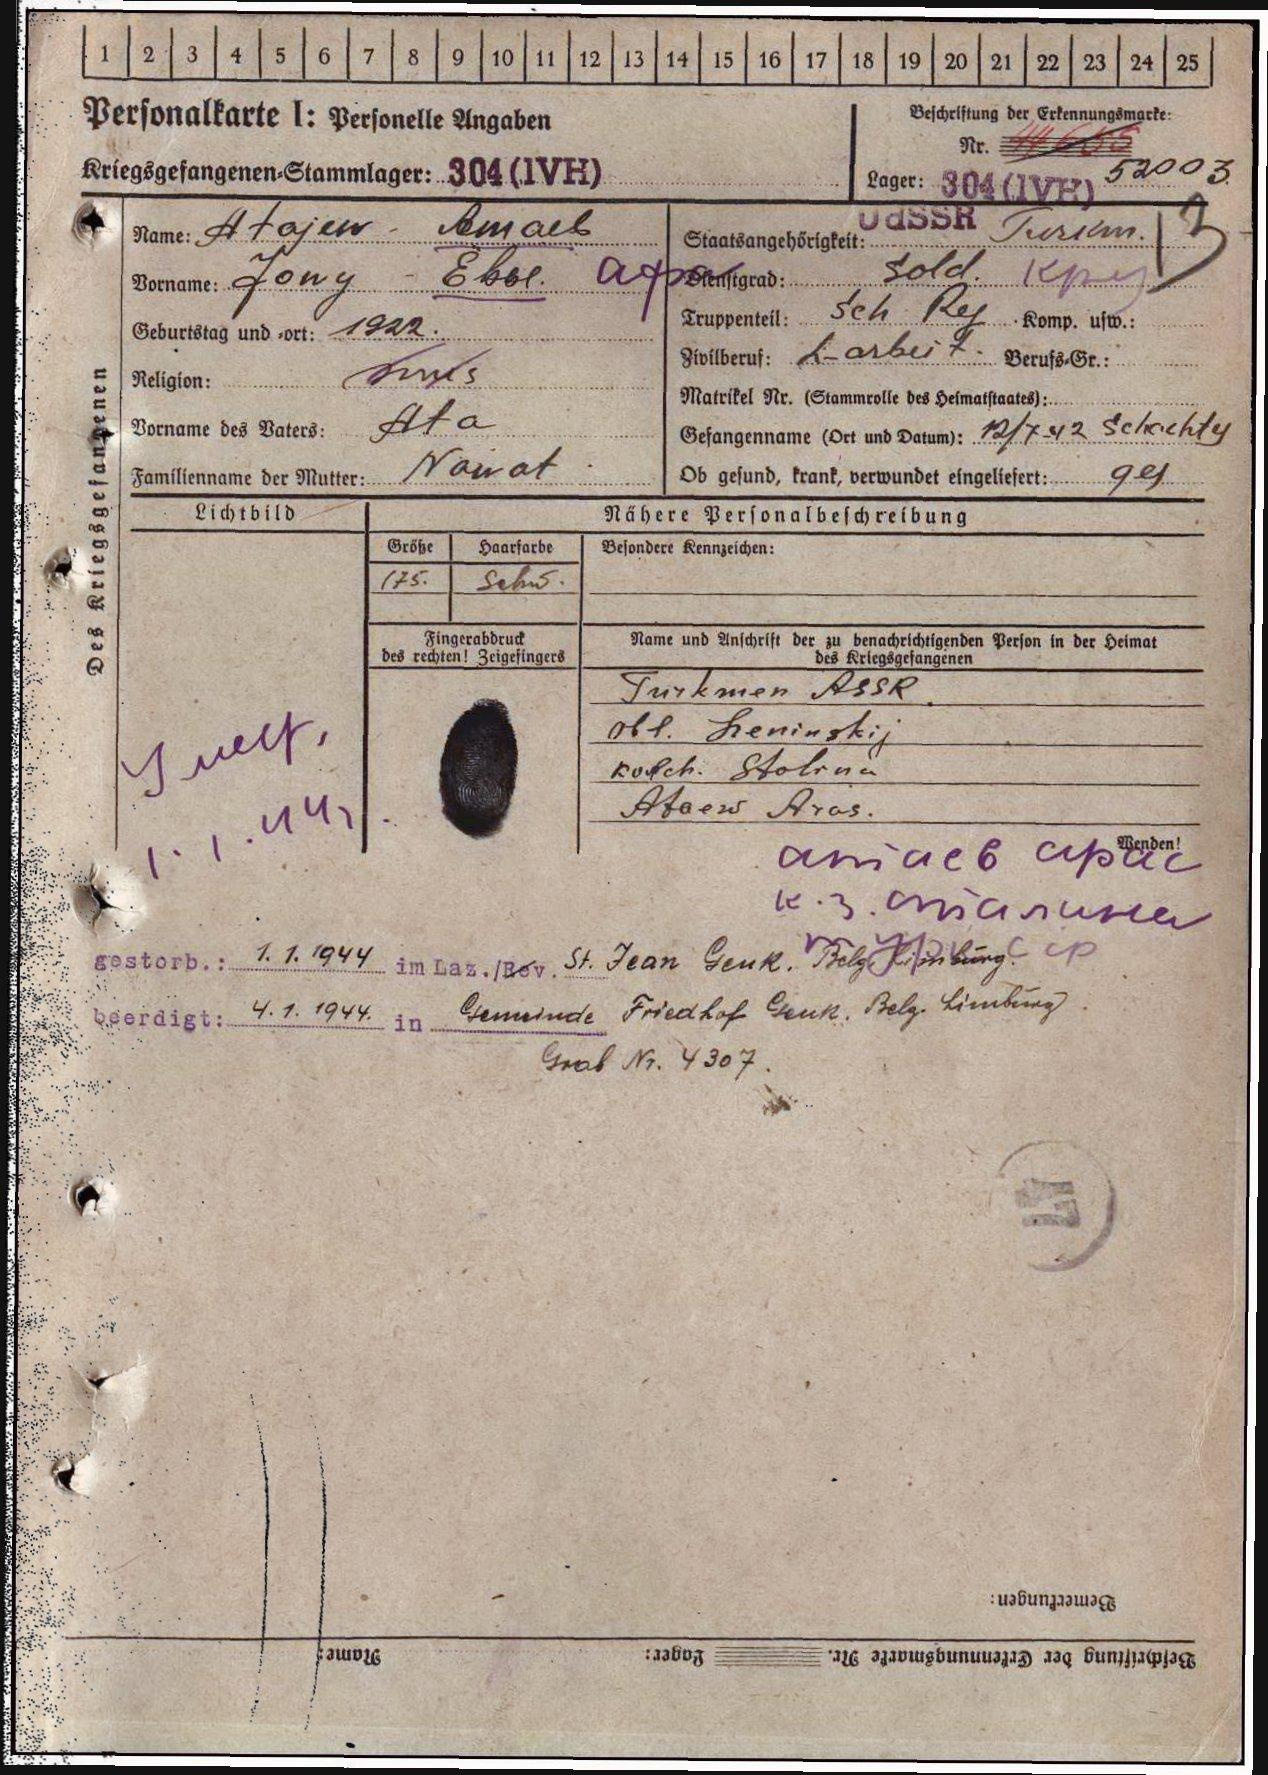 1 2 3 4 5 6 7 8 9 10 11 12 13 14 15 16 17 18 19 20 21 22 23 24 25
Personalkarte I: Personelle Angaben
Kriegsgefangenen-Stammlager: 304 (IVH)
Beschriftung der Erkennungsmarke:
Nr. 52003
Lager: 304 (IVH)
Des Kriegsgefangenen
Name: Atajew - Атаев
Vorname:
Geburtstag und -ort: 1922.
Religion:
Vorname des Vaters: Ata
Familienname der Mutter:
Staatsangehörigkeit: UdSSR Turkm.
Dienstgrad: Sold.
Truppenteil: Sch Reg Komp. usw.:
Zivilberuf: L-arbeit. Berufs-Gr.:
Matrikel Nr. (Stammrolle des Heimatstaates):
Gefangenname (Ort und Datum): 12/7-42 Schachty
Ob gesund, krank, verwundet eingeliefert: ges
Lichtbild
Nähere Personalbeschreibung
Größe Haarfarbe
175. Schw.
Besondere Kennzeichen:
Fingerabdruck
des rechten! Zeigefingers
Name und Anschrift der zu benachrichtigenden Person in der Heimat
des Kriegsgefangenen
Turkmen ASSR.
obl. Leninskij
kolch. Stalina
Ataew Aras.
Wenden!
Умер.
1.1.44г.
атаев арас
к.з. сталина
gestorb.: 1.1.1944 im Laz./Rev. St. Jean Genk. Belg. Limburg.
beerdigt: 4.1.1944. in Gemeinde Friedhof Genk. Belg. Limburg.
Grab Nr. 4307.
Bemerkungen:
Beschriftung der Erkennungsmarke Nr. Lager: Name: